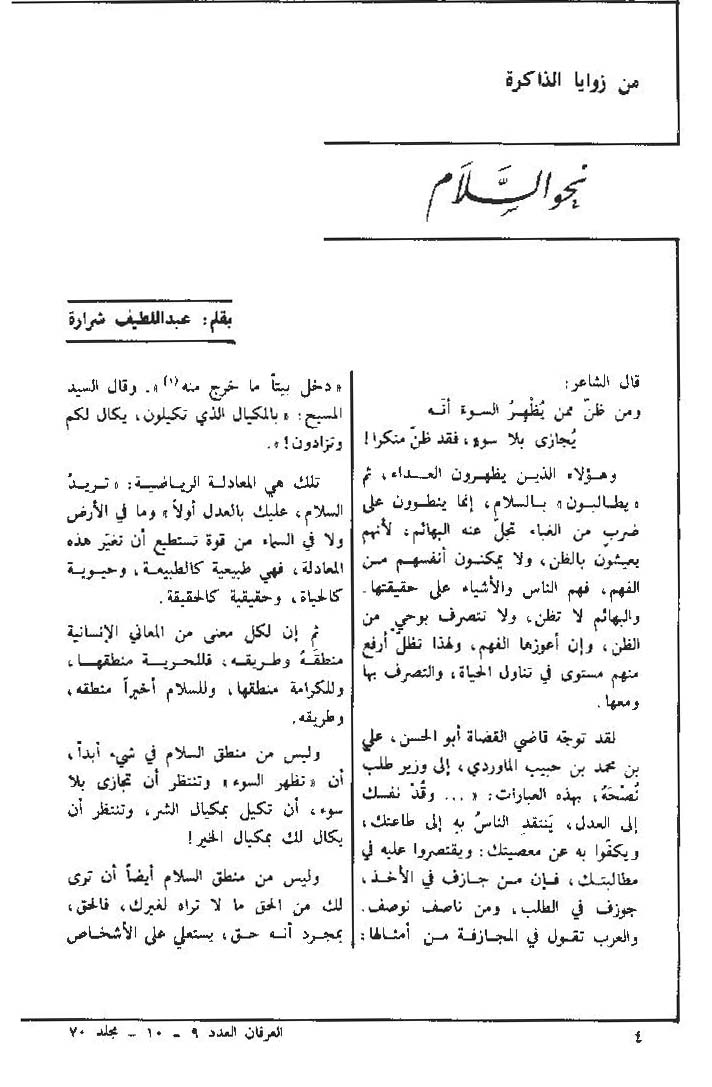 من زوايا الذاكرة
نحو السَّلَام
بقلم: عبداللطيف شرارة
قال الشاعر:
ومن ظنّ ممن يُظْهِرُ السوءَ أنّه
يُجازى بلا سوءٍ، فقد ظنّ منكرا!
وهؤلاء الذين يظهرون العداء، ثم
«يطالبون» بالسلام، إنما ينطوون على
ضربٍ من الغباء تجلّ عنه البهائم، لأنهم
يعبثون بالظن، ولا يمكنون أنفسهم من
الفهم، فهم الناس والأشياء على حقيقتها.
والبهائم لا تظن، ولا تتصرف بوحيٍ من
الظن، وإن أعوزها الفهم، ولهذا تظلّ أرفع
منهم مستوى في تناول الحياة، والتصرف بها
ومعها.
لقد توجّه قاضي القضاة أبو الحسن، علي
بن محمد بن حبيب الماوردي، إلى وزير طلب
نُصْحَهُ، بهذه العبارات: «... وقُدْ نفسك
إلى العدل، يَنتقدِ الناسُ بهِ إلى طاعتك،
ويكفّوا به عن معصيتك: ويقتصروا عليه في
مطالبتك، فإن من جازف في الأخذ،
جوزف في الطلب، ومن ناصف نوصف.
والعرب تقول في المجازفة من أمثالها:
«دخل بيتاً ما خرج منه(١)». وقال السيد
المسيح: «بالمكيال الذي تكيلون، يكال لكم
وتزادون!».
تلك هي المعادلة الرياضية: «تريدُ
السلام، عليك بالعدل أولاً» وما في الأرض
ولا في السماء من قوة تستطيع أن تغيّر هذه
المعادلة، فهي طبيعية كالطبيعة، وحيوية
كالحياة، وحقيقية كالحقيقة.
ثم إن لكل معنى من المعاني الإنسانية
منطقَهُ وطريقه، فللحرية منطقها،
وللكرامة منطقها، وللسلام أخيراً منطقه،
وطريقه.
وليس من منطق السلام في شيء أبداً،
أن «تظهر السوء» وتنتظر أن تجازى بلا
سوء، أن تكيل بمكيال الشر، وتنتظر أن
يكال لك بمكيال الخير!
وليس من منطق السلام أيضاً أن ترى
لك من الحق ما لا تراه لغيرك، فالحق،
بمجرد أنه حق، يستعلي على الأشخاص
٤
العرفان العدد ٩ - ١٠ - مجلد ٧٠